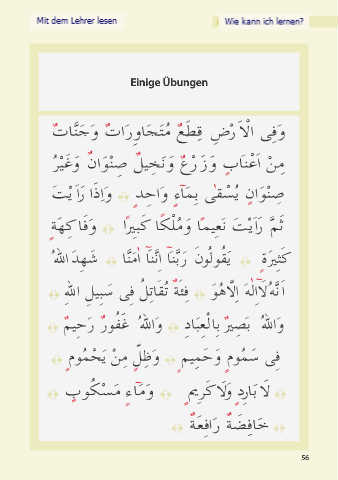 Mit dem Lehrer lesen
Wie kann ich lernen?
Einige Übungen
وَفِى الْاَرْضِ قِطَعٌ مُتَجَاوِرَاتٌ وَجَنَّاتٌ
مِنْ اَعْنَابٍ وَزَرْعٌ وَنَخِيلٌ صِنْوَانٌ وَغَيْرُ
صِنْوَانٍ يُسْقٰى بِمَٓاءٍ وَاحِدٍ ﴿﴾ وَاِذَا رَاَيْتَ
ثَمَّ رَاَيْتَ نَعِيمًا وَمُلْكًا كَبِيرًا ﴿﴾ وَفَاكِهَةٍ
كَثِيرَةٍ ﴿﴾ يَقُولُونَ رَبَّنَٓا اِنَّنَٓا اٰمَنَّا ﴿﴾ شَهِدَ اللهُ
اَنَّهُ لَٓا اِلٰهَ اِلَّا هُوَ ﴿﴾ فِئَةٌ تُقَاتِلُ فِى سَبِيلِ اللهِ ﴿﴾
وَاللهُ بَصِيرٌ بِالْعِبَادِ ﴿﴾ وَاللهُ غَفُورٌ رَحِيمٌ ﴿﴾
فِى سَمُومٍ وَحَمِيمٍ ﴿﴾ وَظِلٍّ مِنْ يَحْمُومٍ ﴿﴾
﴿﴾ لَا بَارِدٍ وَلَا كَرِيمٍ ﴿﴾ وَمَٓاءٍ مَسْكُوبٍ ﴿﴾
﴿﴾ خَافِضَةٌ رَافِعَةٌ ﴿﴾
56